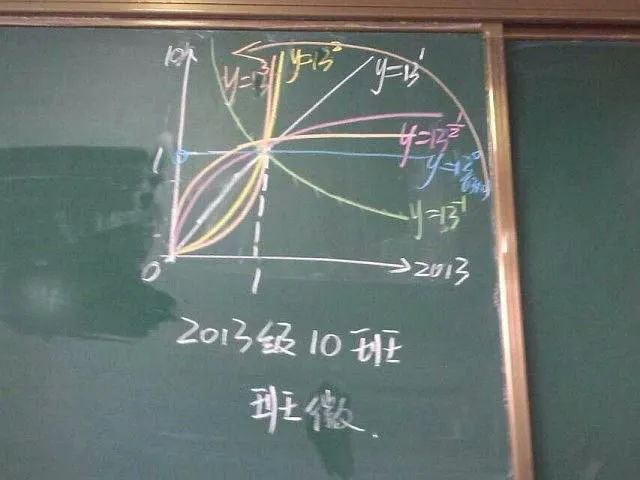 10
y=13³
y=13²
y=13¹
y=13^½
1
y=13⁰
y=13⁻¹
0
1
2013
2013级10班
班徽.